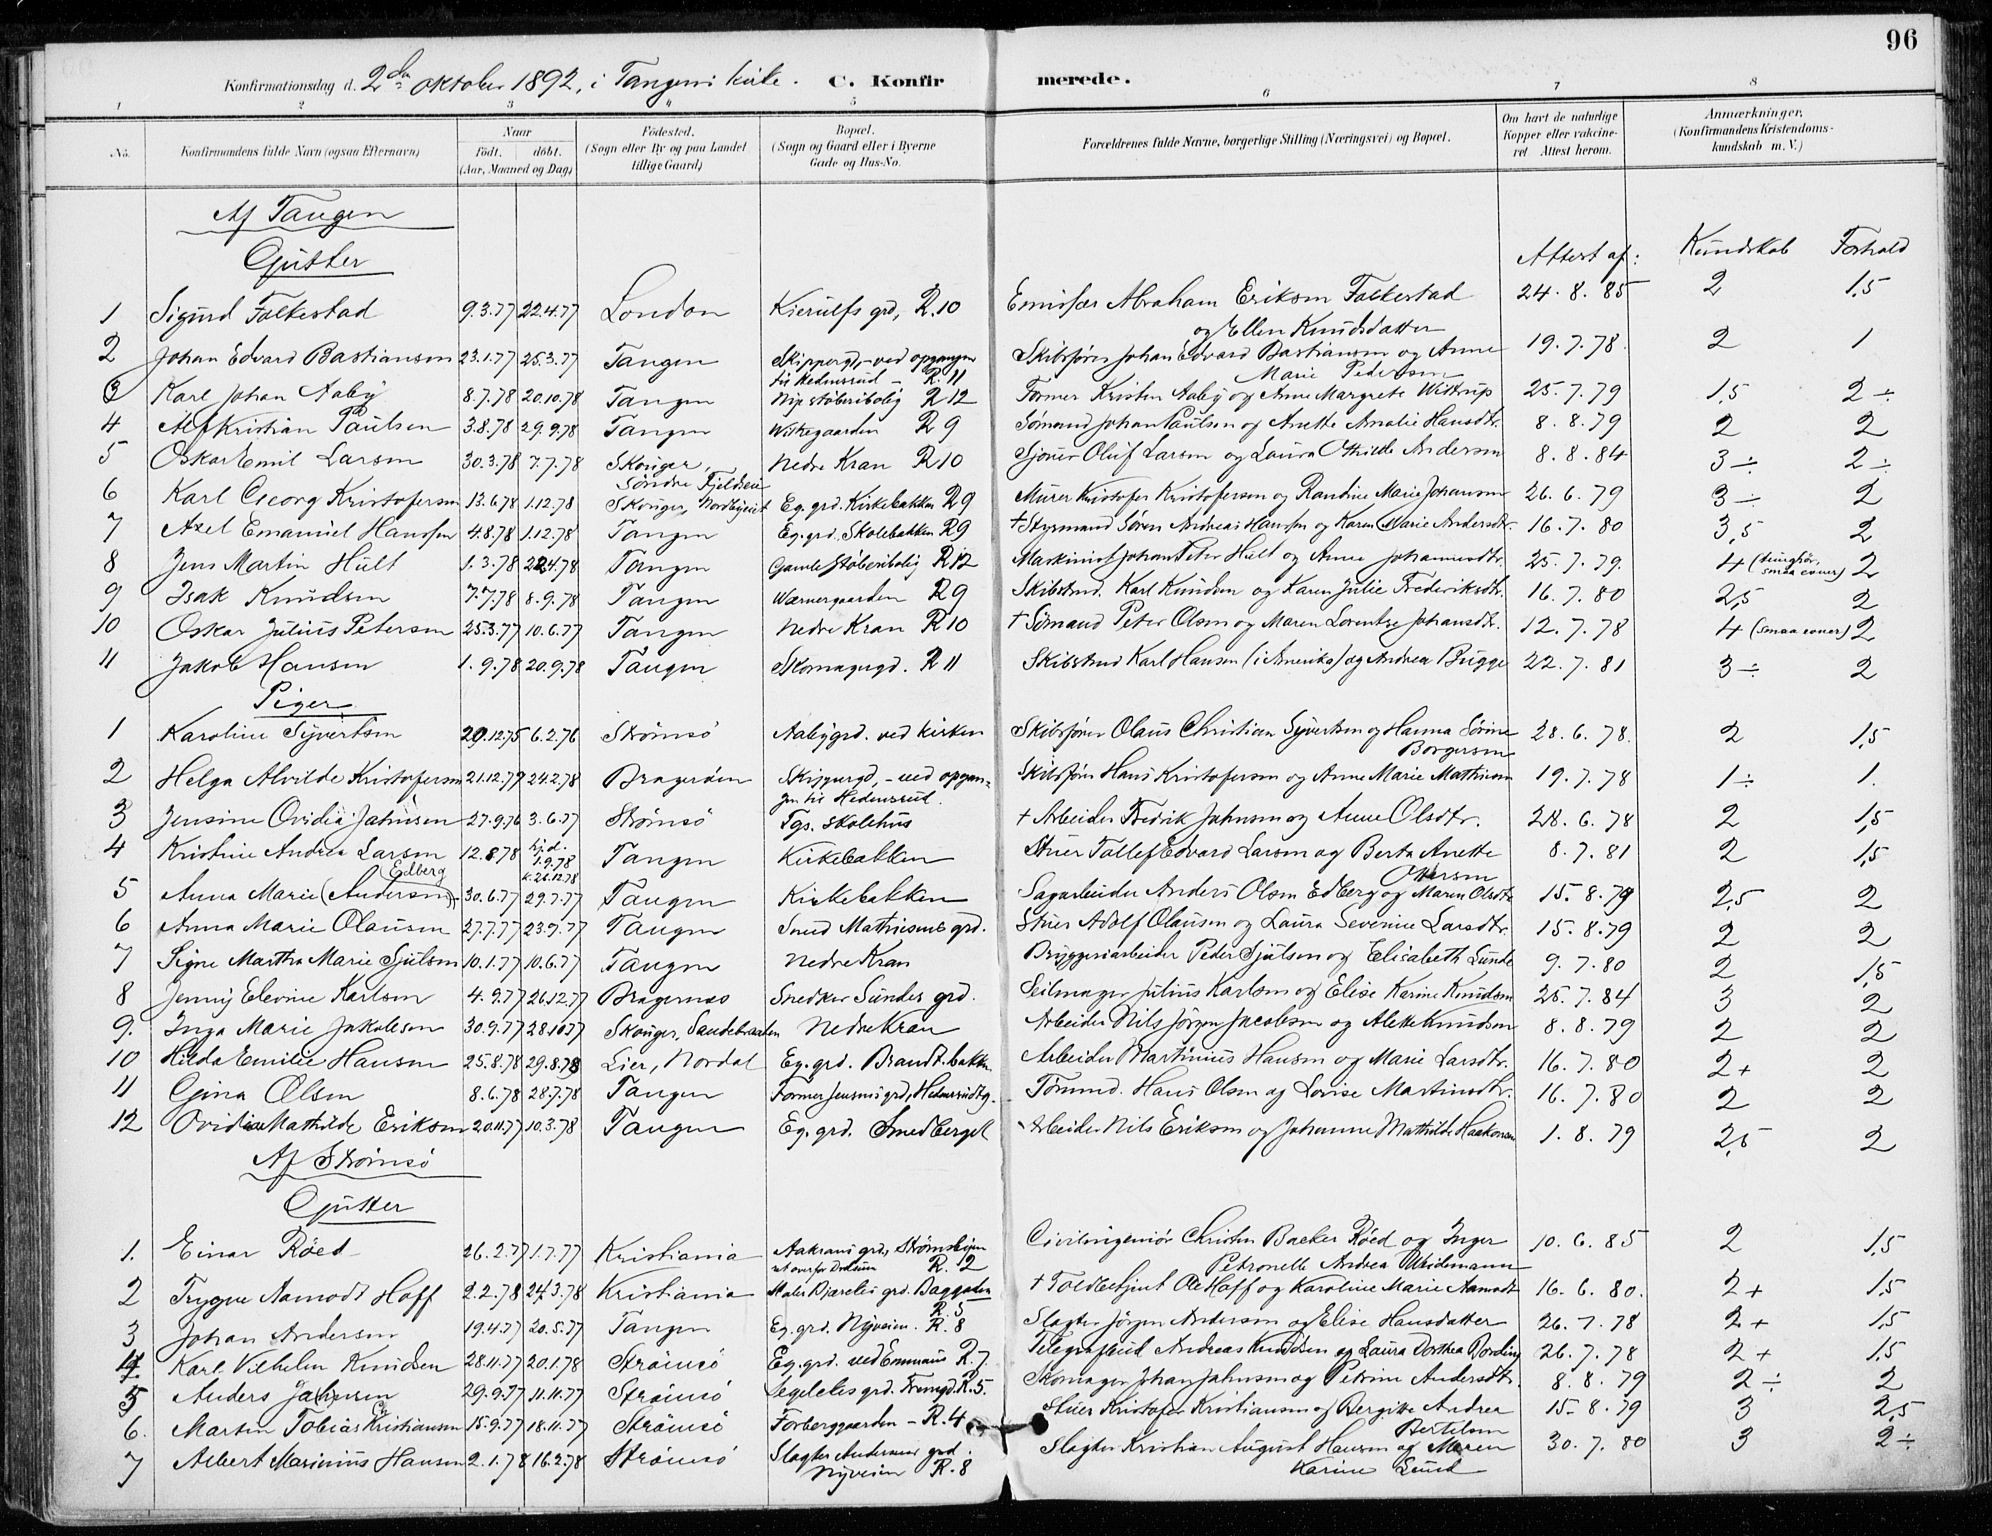 96
Konfirmationsdag d. 2den oktober 1892, i Tangens kirke. C. Konfirmerede.
1 2 3 4 5 6 7 8
No. Konfirmandens fulde Navn (ogsaa Efternavn) Naar født. døbt. (Aar, Maaned og Dag) Fødested. (Sogn eller By og paa Landet tillige Gaard) Bopæl. (Sogn og Gaard eller i Byerne Gade og Hus-No. Forældrenes fulde Navne, borgerlige Stilling (Næringsvei) og Bopæl. Om havt de naturlige Kopper eller vakcineret Attest herom. Anmærkninger. (Konfirmandens Kristendomskundskab m. V.)
Af Tangen
Gutter Attest af: Kundskab Forhold
1 Sigurd Falkestad 9.3.77 22.4.77 London Kierulfs grd, R.10 Abraham Erikson Falkestad og Ellen Knudsdatter 24.8.85 2 1,5
2 Johan Edvard Bastiansen 23.1.77 25.3.77 Tangen Skippergd, - ved opgangen til Hedensrud - R.11 Skibsfører Johan Edvard Bastiansen og Anne Marie Pedersen 19.7.78. 2 1
3 Karl Johan Aaby 8.7.78 20.10.78 Tangen Nip støberibolig R12 Former Kristen Aaby og Anne Margrete Wittrup 25.7.79 1,5 2÷
4 Alf Kristian Paulsen 3.8.78 29.9.78 Tangen R9 Sømand Johan Paulsen og Anette Amalie Hansdtr. 8.8.79 2 2
5 Oskar Emil Larsen 30.3.78 7.7.78 Skouger, Søndre Fjeldseie Nedre Kran R10 Sjouer Oluf Larsen og Laura Othilde Andersen 8.8.84 3÷ 2÷
6 Karl Georg Kristofersen 13.6.78 1.12.78 Skouger, Nordbyeiet Eg. grd. Kirkebakken R9 Murer Kristofer Kristofersen og Randine Marie Johansen 26.6.79 3÷ 2
7 Axel Emanuel Hansen 4.8.78 1.12.78 Tangen Eg. grd. Skolebakken R9 † Styrmand Søren Andreas Hansen og Karen Marie Andersdtr. 16.7.80 3,5 2
8 Jens Martin Hult 1.3.78 22.4.78 Tangen Gamle Støberibolig R12 Maskinist Johan Peter Hult og Anne Johannesdtr. 25.7.79. 4 (tunghør, smaa evner) 2
9 Isak Knudsen 7.7.78 8.9.78 Tangen Wærnergaarden R9 Skibstmd. Karl Knudsen og Karen Julie Frederiksdtr. 16.7.80 2,5 2
10 Oskar Julius Petersen 25.3.77 10.6.77 Tangen Nedre Kran R10 † Sømand Peter Olsen og Maren Lorentze Johansdtr. 12.7.78 4 (smaa evner) 2
11 Jakob Hansen 1.9.78 20.9.78 Tangen Skomagergd. R11 Skibstmd Karl Hansen (i Amerika) og Andrea Bugge 22.7.81 3÷ 2
Piger
1 Karoline Syvertsen 29.12.75 6.2.76 Strømsö Aabygrd. ved kirken Skibsfører Olaus Christian Syvertsen og Hanna Sørine Borgersen 28.6.78. 2 1,5
2 Helga Alvilde Kristofersen 21.12.77 24.2.78 Bragerøen Skippergd, - ved opgangen til Hedensrud. Skibsfører Hans Kristofersen og Anne Marie Mathisen 19.7.78 1÷ 1.
3 Jensine Ovidia Jahnsen 27.9.76 3.6.77 Strømsö Tgs. skolehus † Arbeider Fredrik Jahnsen og Anne Olsdtr. 28.6.78 2 1,5
4 Kristine Andrea Larsen 12.8.78 hj.d. 1.9.78 k. 26.12.78 Tangen Kirkebakken Stuer Tollef Edvard Larsen og Berta Anette Ottersen 8.7.81 2 1,5
5 Anna Marie (Andersen) Edberg 30.6.77 29.7.77 Tangen Kirkebakken Sagarbeider Anders Olsen Edberg og Maren Olsdtr 15.8.79 2,5 2
6 Anna Marie Olausen 27.7.77 23.9.77 Tangen Smed Mathisens grd. Stuer Adolf Olausen og Laura Severine Larsdtr. 15.8.79 2 2
7 Signe Martha Marie Sjulsen 10.1.77 10.6.77 Tangen Nedre Kran Bryggeriarbeider Peder Sjulsen og Elisabeth Lunde 9.7.80 2 1,5
8 Jenny Elevine Karlsen 4.9.77 26.12.77 Bragernæs Snedker Sundes grd. Seilmager Julius Karlsen og Elise Karine Knudsen 25.7.84 3 2
9. Inga Marie Jakobsen 30.9.77 28.10.77 Skouger, Sandebraaten Nedre Kran Arbeider Nils Jörgen Jacobsen og Alette Knudsen 8.8.79 2 2
10 Hilda Emilie Hansen 25.8.78 29.8.78 Lier, Nordal Eg. grd. Brandt.bakken Arbeider Martinius Hansen og Marie Larsdtr. 16.7.80 2+ 2
11 Gina Olsen 8.6.78 28.7.78 Tangen Former Jensens grd, Hedensrudbg. Tømmd. Hans Olsen og Lovise Martinsdtr. 16.7.80 2 2
12 Ovidia Mathilde Eriksen 20.11.77 10.3.78 Tangen Eg. grd. Smedberget Arbeider Nils Eriksen og Johanne Mathilde Haakonsen 1.8.79 2,5 2
Af Strømsö
Gutter
1. Einar Røed 26.2.77 1.7.77 Kristiania Aakrans grd, Strømsbyen ret overfor R.2 Civilingeniør Christen Backer Røed og Inger Petronelle Andrea Weidemann 10.6.85 2 1,5
2 Trygve Aamodt Hoff 2.2.78 24.3.78 Kristiania grd. Baggaden R.5 † Toldbetjent Ole Hoff og Karoline Marie Aamodt 16.6.80. 2+ 1,5
3 Johan Andersen 19.4.77 20.5.77 Tangen Eg. grd. Nyveien. R.8 Slagter Jörgen Andersen og Elise Hansdatter 26.7.78 2+ 1,5
4 Karl Vilhelm Knudsen 28.11.77 20.1.78 Strömsö Eg. grd. ved Emmaus R.7. Telegrafbud Andreas Knudsen og Laura Dorthea Bording 26.7.78 2+ 1,5
5 Anders Jahnsen 29.9.77 11.11.77 Strömsö grd. Tremgd. R.5. Skomager Johan Jahnsen og Petrine Andersdtr. 8.8.79 2÷ 2
6. Martin Tobias Kristiansen 15.9.77 18.11.77 Strömsö Forberggaarden - R.4 Stuer Kristofer Kristiansen og Bergitte Andrea Bertelsen 15.8.79 3 2,5
7 Albert Marinius Hansen 2.1.78 16.2.78 Strömsö Slagter Andersens grd. Nyveien R.8 Slagter Kristian August Hansen og Maren Karine Lund 30.7.80 3 2÷